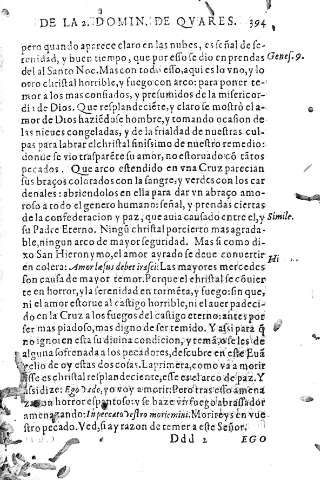 DE LA 2. DOMIN. DE QVARES. 394
pero quando aparece claro en las nubes, es señal de se-
renidad, y buen tiempo, que por esso se dio en prendas Genes. 9.
del al Santo Noe. Mas con todo esso, aqui es lo vno, y lo
otro christal horrible, y fuego con arco: para poner te-
mor a los mas confiados, y presumidos de la misericor-
dia de Dios. Que resplandeciēte, y claro se mostrò el a-
mor de Dios haziēdose hombre, y tomando ocasion de
las nieues congeladas, y de la frialdad de nuestras cul-
pas para labrar el christal finissimo de nuestro remedio:
donde se vio trasparēte su amor, no estoruado cō tātos
pecados. Que arco estendido en vna Cruz parecian
sus braços colorados con la sangre, y verdes con los car
denales: abriendolos en ella para dar vn abraço amo-
roso a todo el genero humano: señal, y prendas ciertas
de la confederacion y paz, que auia causado entre el, y Simile.
su Padre Eterno. Ningū christal por cierto mas agrada-
ble, ningun arco de mayor seguridad. Mas si como di-
xo San Hieronymo, el amor ayrado se deue conuertir Hi
en colera: Amor læsus debet irasci: Las mayores mercedes
son causa de mayor temor. Porque el christal se cōuier
te en horror, y la serenidad en tormēta, y fuego: sin que,
ni el amor estorue al castigo horrible, ni el auer padeci-
do en la Cruz a los fuegos del castigo eterno: antes por
ser mas piadoso, mas digno de ser temido. Y assi para q̄
no ignoren esta su diuina condicion, y remāso se les de
alguna sofrenada a los pecadores, descubre en este Euā
gelio de oy estas dos cosas. La primera, como va a morir
esse es christal resplandeciente, esse es el arco de paz. Y
assi dize: Ego vado, yo voy a morir. Pero tras esso amena
za con horror espantoso: y se haze vn fuego abrasador
amenazando: In peccato vestro moriemini. Morireys en vue
stro pecado. Ved, si ay razon de temer a este Señor.
Ddd 2 EGO